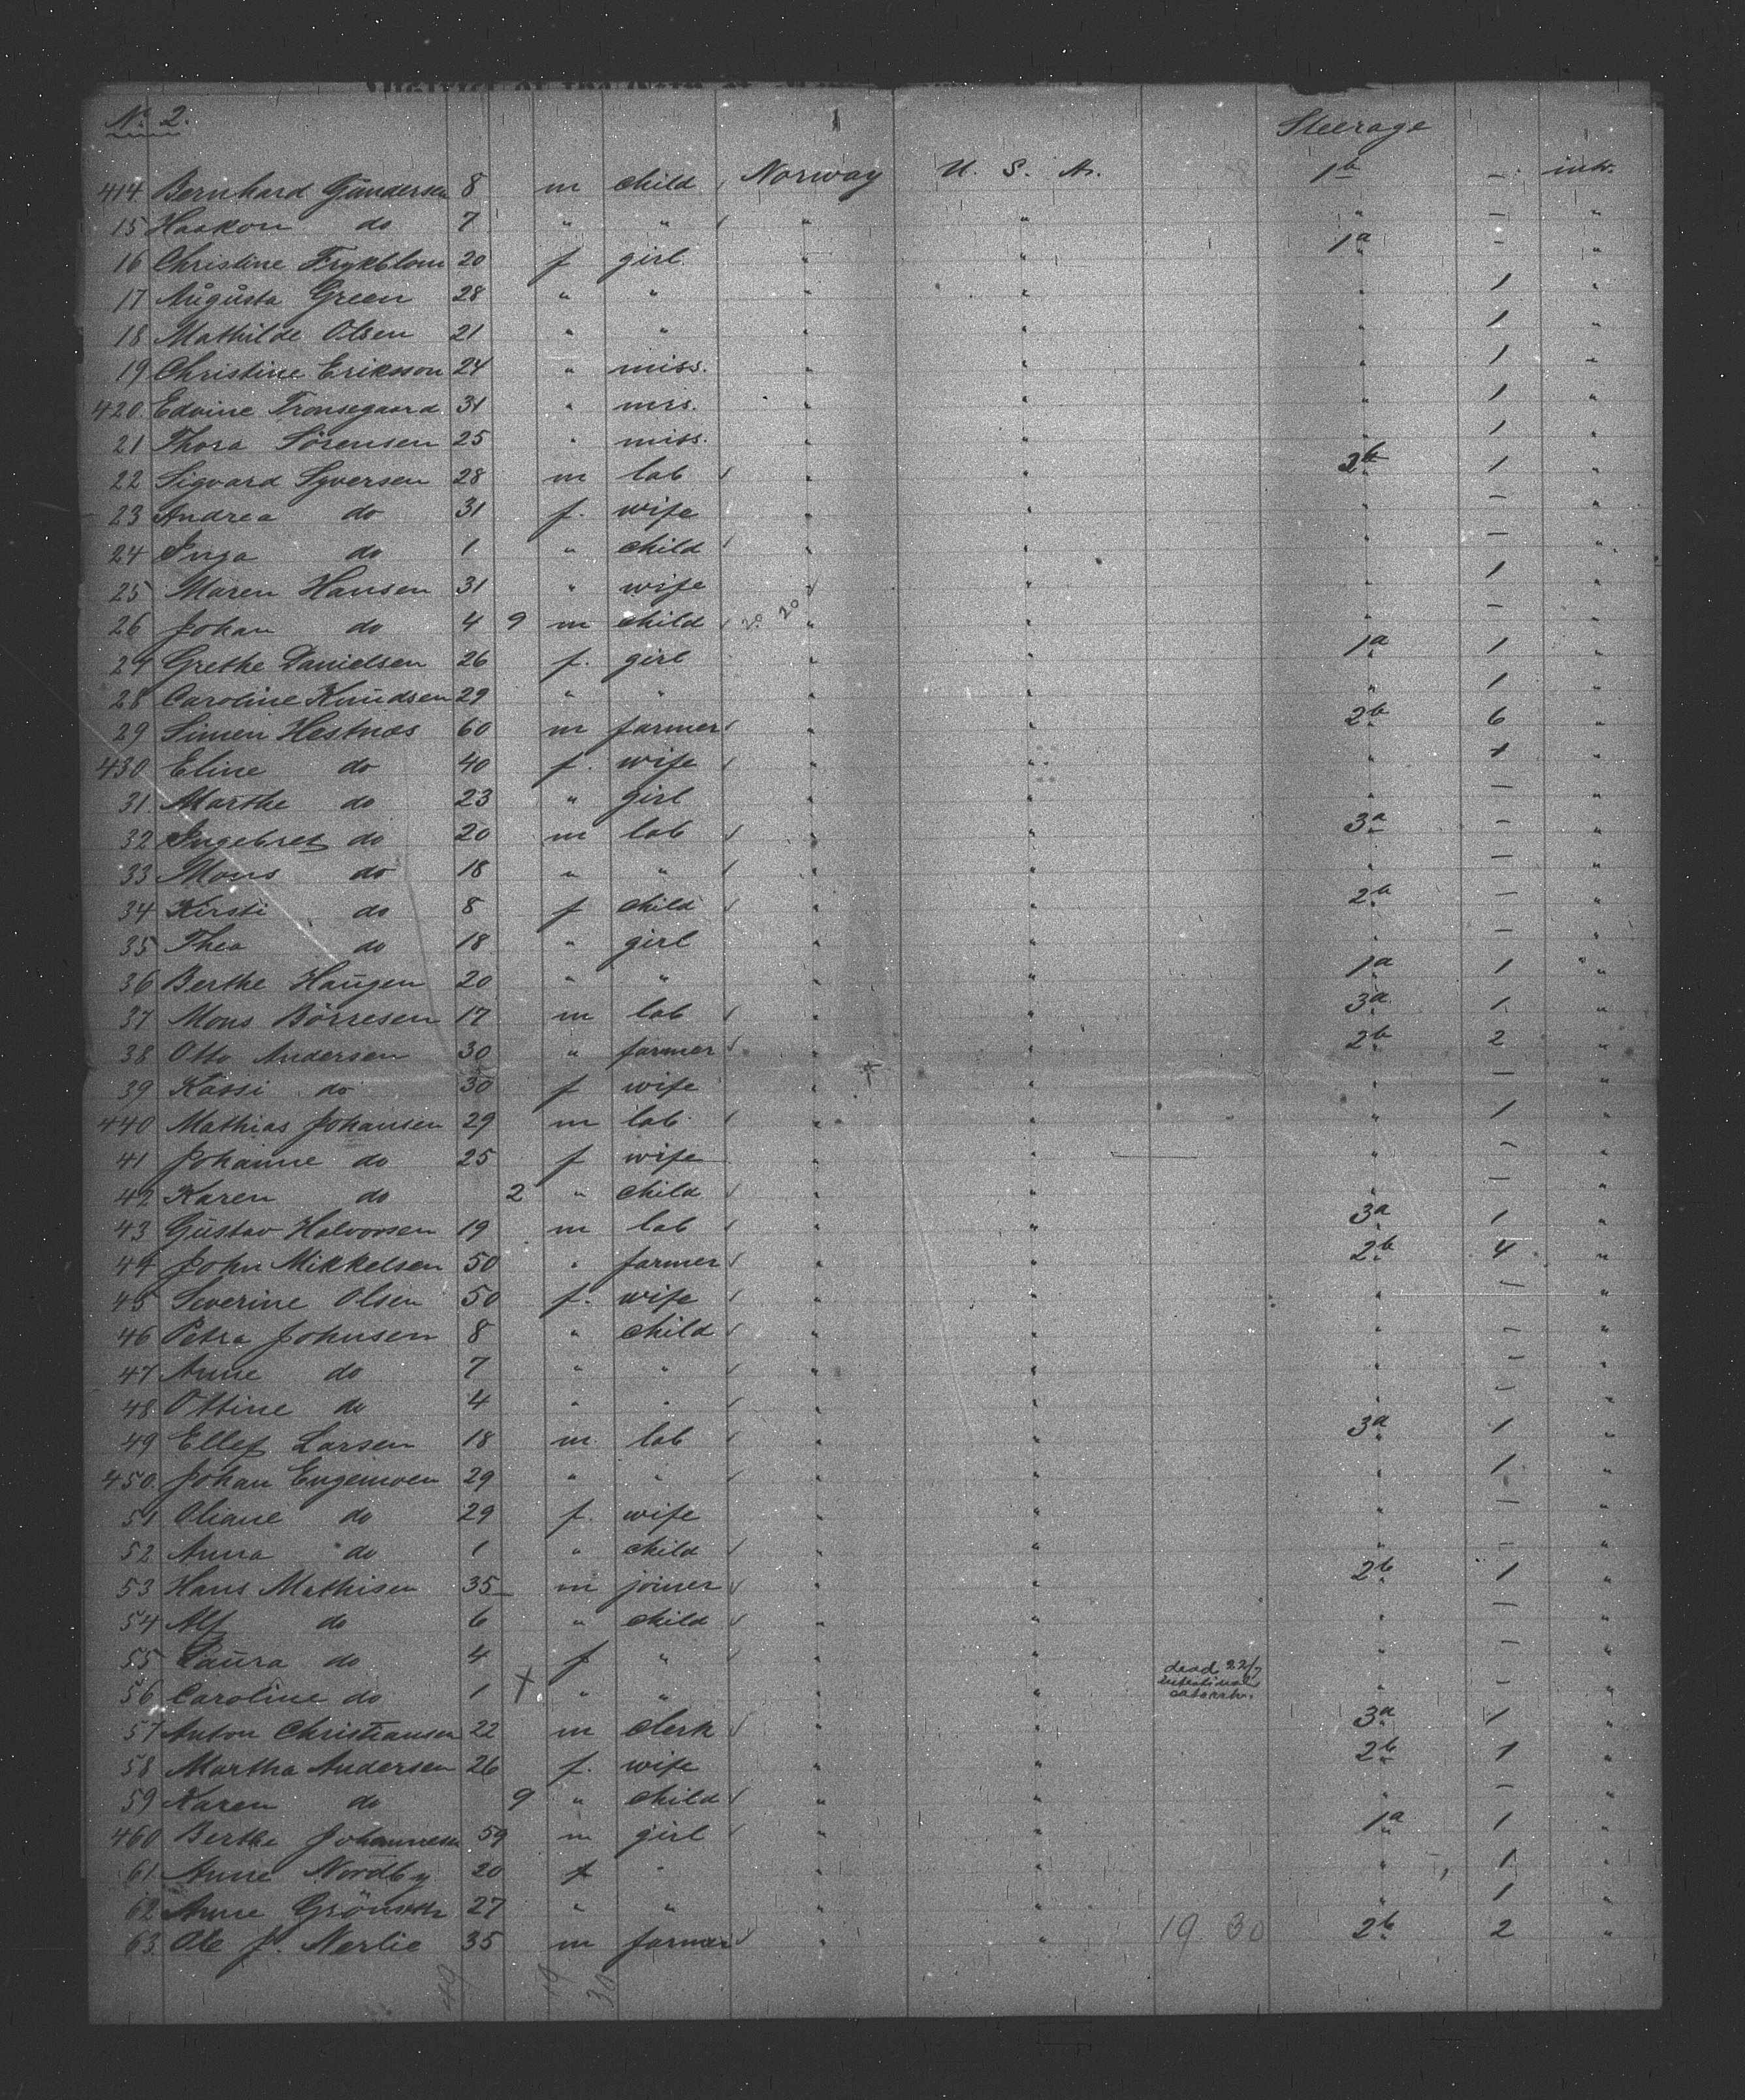 No 2.
Steerage
414 Bernhard Gundersen 8 m child Norway U. S. A. 1b – intr.
15 Haakon do 7 " " " " " – "
16 Christine Frykblom 20 f girl " " 1a – "
17 Augusta Green 28 " " " " " 1 "
18 Mathilde Olsen 21 " " " " " 1 "
19 Christine Eriksson 24 " miss. " " " 1 "
420 Edvine Tronsegaard 31 " mrs. " " " 1 "
21 Thora Sörensen 25 " miss. " " " 1 "
22 Sigvard Syversen 28 m lab " " 2b 1 "
23 Andrea do 31 f. wife " " " – "
24 Inga do 1 " child " " " – "
25 Maren Hansen 31 " wife " " " 1 "
26 Johan do 4 9 m child 20 20 " " " – "
27 Grethe Danielsen 26 f. girl " " 1a 1 "
28 Caroline Knudsen 29 " " " " " 1 "
29 Simen Hestnæs 60 m farmer " " 2b 6 "
430 Eline do 40 f. wife " " " 1 "
31 Marthe do 23 " girl " " " – "
32 Ingebret do 20 m lab " " 3a – "
33 Mons do 18 " " " " " – "
34 Kirsti do 8 f child " " 2b – "
35 Thea do 18 " girl " " " – "
36 Berthe Haugen 20 " " " " 1a 1 "
37 Mons Börresen 17 m lab " " 3a 1 "
38 Otto Andersen 30 " farmer " " 2b 2 "
39 Kassi do 30 f wife " " " – "
440 Mathias Johansen 29 m lab " " " 1 "
41 Johanne do 25 f wife " " " – "
42 Karen do 2 " child " " " – "
43 Gustav Halvorsen 19 m lab " " 3a 1 "
44 John Mikkelsen 50 " farmer " " 2b 4 "
45 Severine Olsen 50 f. wife " " " – "
46 Petra Johnsen 8 " child " " " – "
47 Anne do 7 " " " " " – "
48 Ottine do 4 " " " " " – "
49 Ellef Larsen 18 m. lab " " 3a 1 "
450 Johan Engemoen 29 " " " " " 1 "
51 Oliane do 29 f. wife " " " – "
52 Anna do 1 " child " " " – "
53 Hans Mathisen 35 m joiner " " 2b 1 "
54 Alf do 6 " child " " " – "
55 Laura do 4 f " " " " – "
56 Caroline do 1 + " " " " dead 22/7 intestinal catarrh. " – "
57 Anton Christiansen 22 m clerk " " 3a 1 "
58 Martha Andersen 26 f. wife " " 2b 1 "
59 Karen do 9 " child " " " – "
460 Berthe Johannesen 59 m girl " " 1a 1 "
61 Anne Nordby 20 f " " " " 1 "
62 Anne 27 " " " " " 1 "
63 Ole J. Nerlie 35 m farmer " " 19 30 2b 2 "
49 19 30